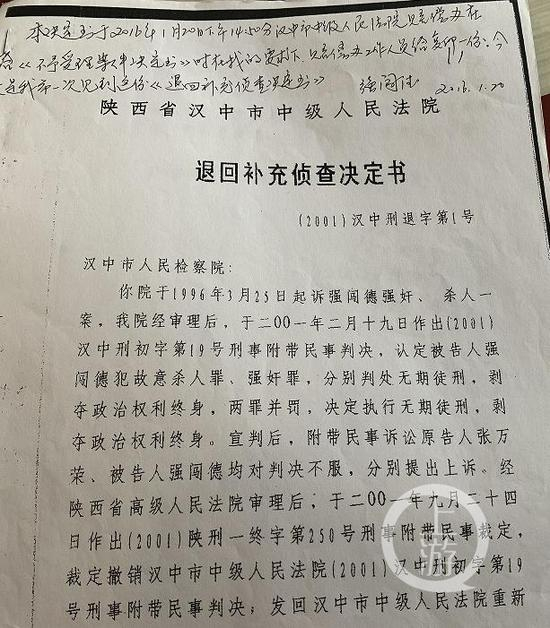 本决定书于2016年1月20日下午14:50分汉中市中级人民法院赔偿办在
《不予受理案件决定书》时在我的要求下,赔偿办工作人员给复印一份,今
是我第一次见到这份《退回补充侦查决定书》 强闯德 2016.1.20
陕西省汉中市中级人民法院
退回补充侦查决定书
(2001)汉中刑退字第1号
汉中市人民检察院:
你院于1996年3月25日起诉强闯德强奸、杀人一
案,我院经审理后,于二00一年二月十九日作出(2001)
汉中刑初字第19号刑事附带民事判决,认定被告人强
闯德犯故意杀人罪、强奸罪,分别判处无期徒刑,剥
夺政治权利终身,两罪并罚,决定执行无期徒刑,剥
夺政治权利终身。宣判后,附带民事诉讼原告人张万
荣、被告人强闯德均对判决不服,分别提出上诉。经
陕西省高级人民法院审理后,于二00一年九月二十四
日作出(2001)陕刑一终字第250号刑事附带民事裁定,
裁定撤销汉中市中级人民法院(2001)汉中刑初字第19
号刑事附带民事判决;发回汉中市中级人民法院重新
上游